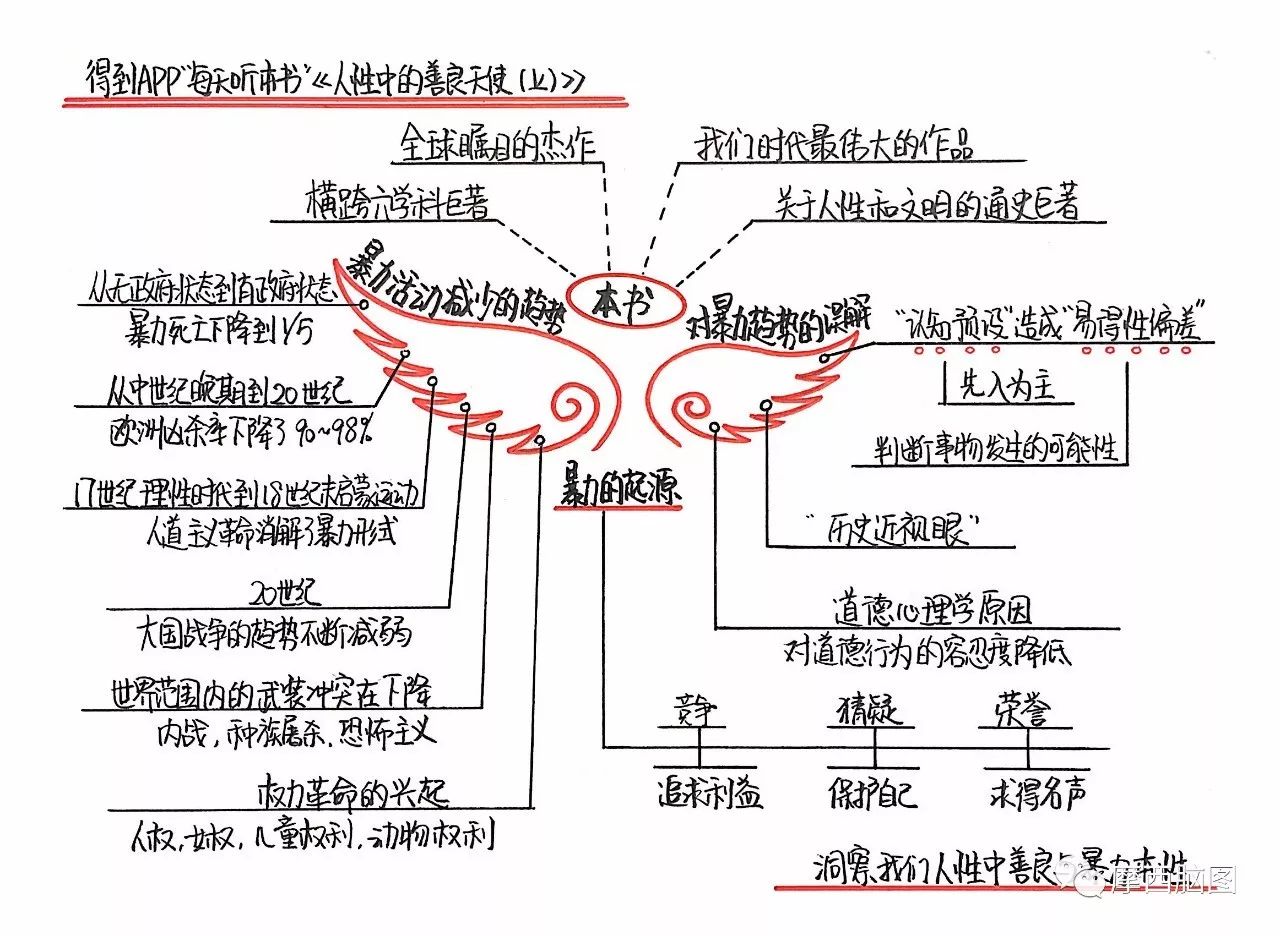 得到APP"每天听本书"《人性中的善良天使(上)》
全球瞩目的杰作
我们时代最伟大的作品
横跨六学科巨著
关于人性和文明的通史巨著
本书
暴力活动减少的趋势
从无政府状态到有政府状态
暴力死亡下降到1/5
从中世纪晚期到20世纪
欧洲凶杀率下降了90~98%
17世纪理性时代到18世纪末启蒙运动
人道主义革命消解了暴力形式
20世纪
大国战争的趋势不断减弱
世界范围内的武装冲突在下降
内战,种族屠杀,恐怖主义
权力革命的兴起
人权,女权,儿童权利,动物权利
对暴力趋势的误解
"认知预设"造成"易得性偏差"
先入为主
判断事物发生的可能性
"历史近视眼"
道德心理学原因
对道德行为的容忍度降低
暴力的起源
竞争
猜疑
荣誉
追求利益
保护自己
求得名声
洞察我们人性中善良与暴力本性
摩西脑图